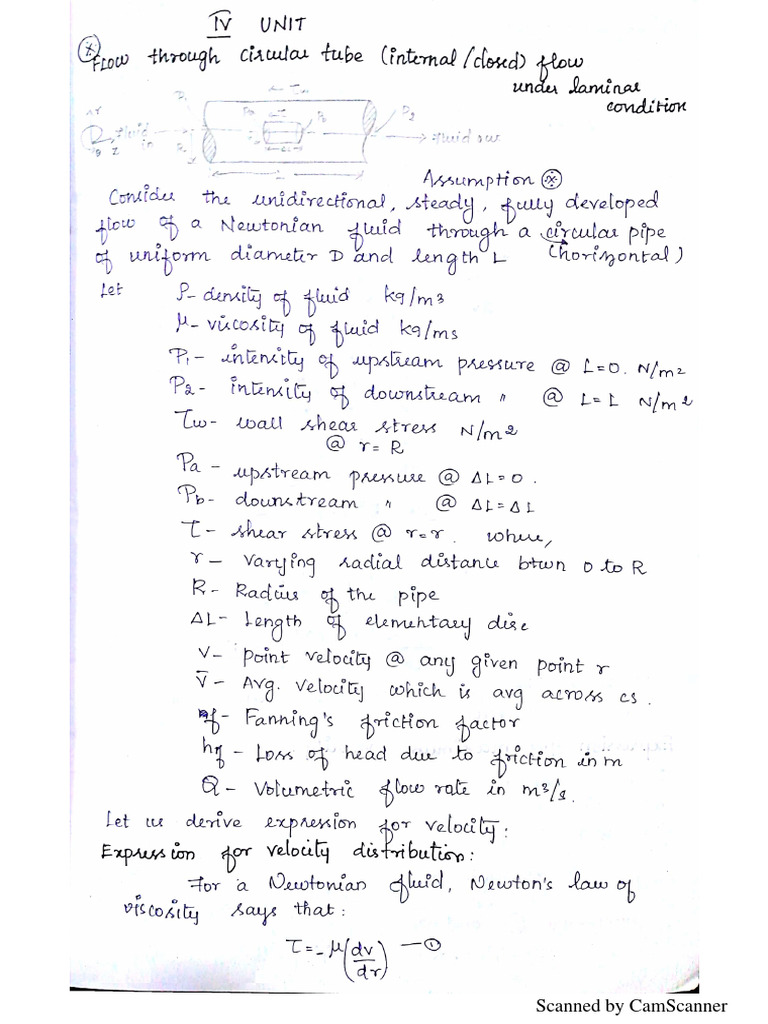 IV UNIT
Flow through circular tube (internal/closed) flow
under laminar
condition
P1
P2
fluid in
fluid out
Assumption
Consider the unidirectional, steady, fully developed
flow of a Newtonian fluid through a circular pipe
of uniform diameter D and length L (horizontal)
Let
ρ- density of fluid kg/m3
μ- viscosity of fluid kg/ms
P1- intensity of upstream pressure @ L=0. N/m2
P2- intensity of downstream " @ L=L N/m2
τw- wall shear stress N/m2
@ r=R
Pa- upstream pressure @ ΔL=0.
Pb- downstream " @ ΔL=ΔL
τ- shear stress @ r=r. where,
r- varying radial distance btwn 0 to R
R- Radius of the pipe
ΔL- Length of elementary disc
v- point velocity @ any given point r
v̄- Avg. velocity which is avg across cs.
f- Fanning's friction factor
hf- Loss of head due to friction in m
Q- Volumetric flow rate in m3/s.
Let us derive expression for velocity:
Expression for velocity distribution:
For a Newtonian fluid, Newton's law of
viscosity says that:
τ=-μ(dv/dr) —①
Scanned by CamScanner